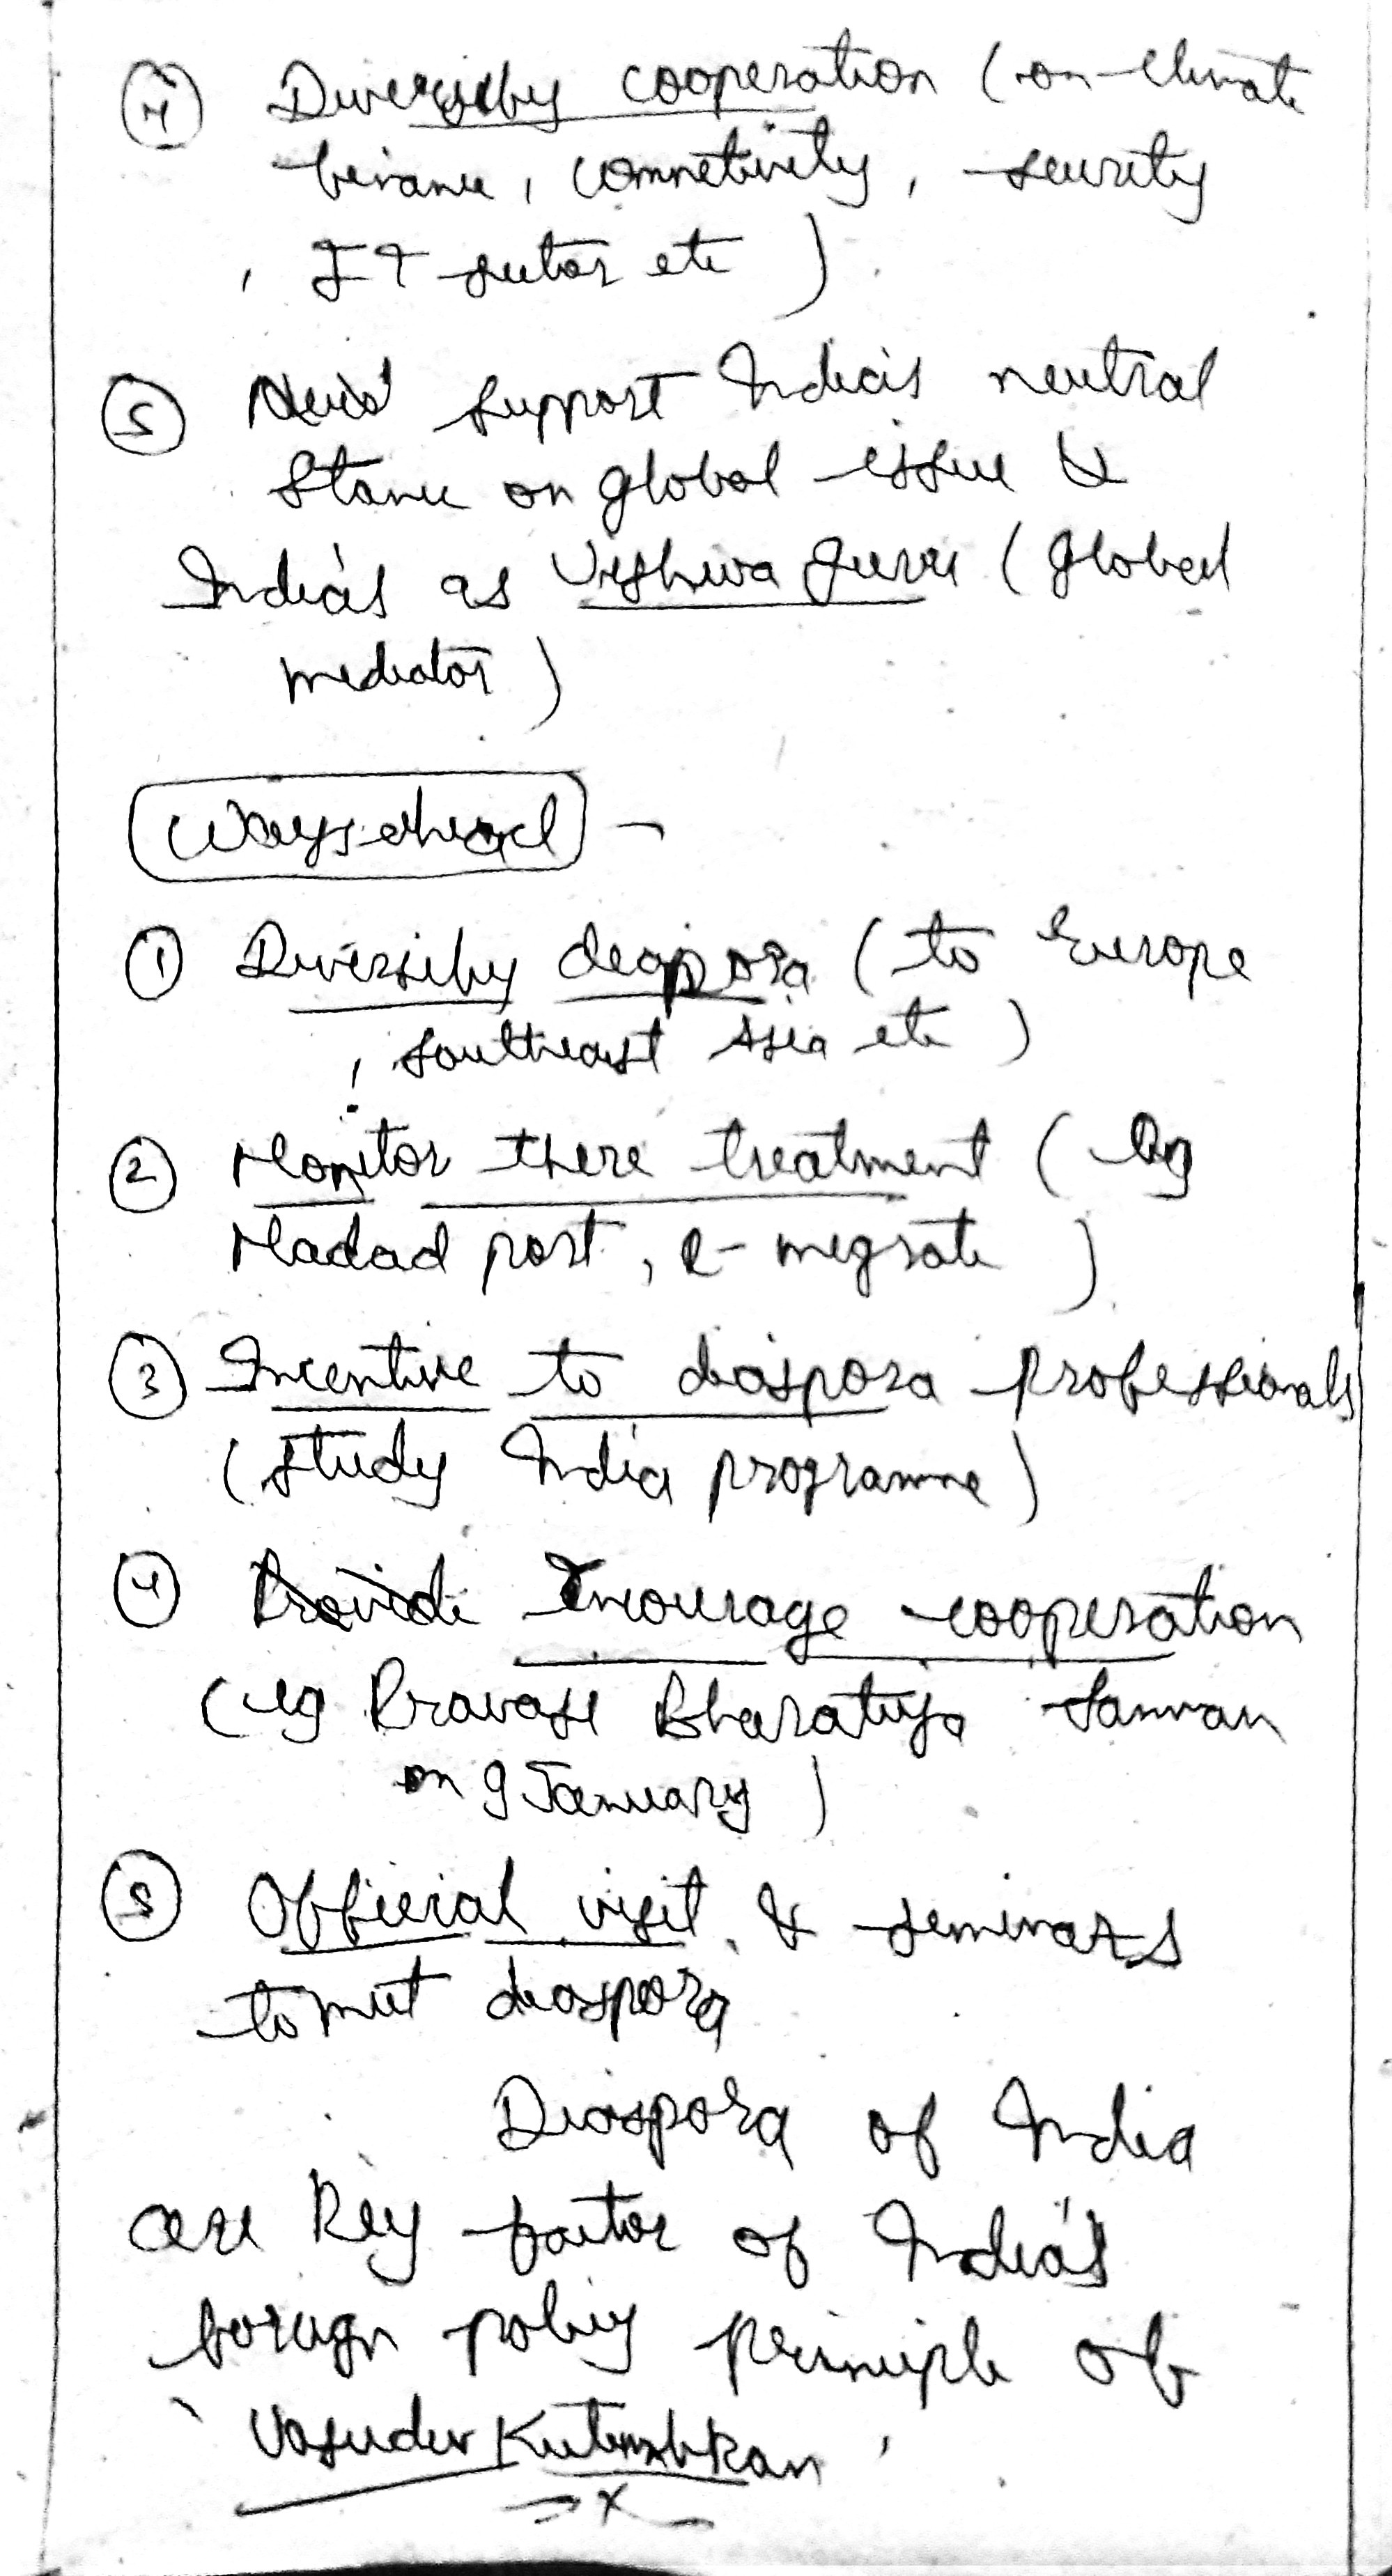 ④ Diversify cooperation (on climate
finance, connetivity, security
, IT sector etc)
⑤ support India's neutral
stance on global issue &
India's as Vishwa guru (global
mediator)
Ways ahead -
① Diversify diaspora (to Europe
, southeast Asia etc)
② Monitor there treatment (eg
Madad port, e-migrate)
③ Incentive to diaspora professionals
(study India programme)
④ Provide Encourage cooperation
(eg Pravasi Bharatiya Samman
on 9 January)
⑤ Official visit & seminars
to meet diaspora
Diaspora of India
are key factor of India's
foreign policy principle of
'Vasudev Kutumbkam'
x